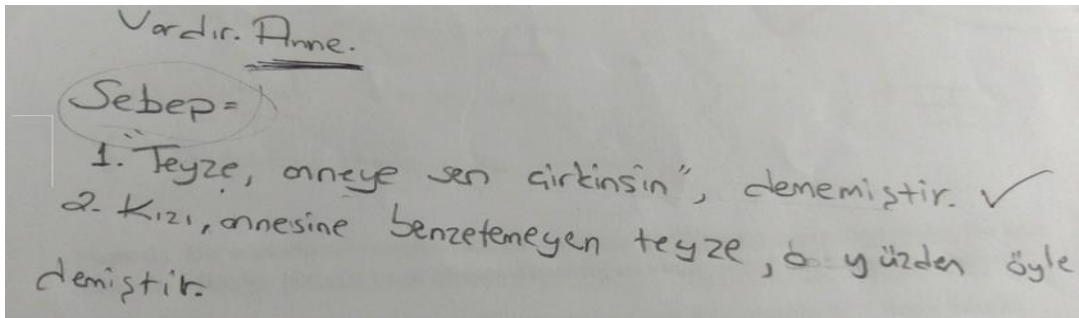 Vardır. Anne.
Sebep=
1. "Teyze, anneye sen çirkinsin", dememiştir. ✓
2. Kızı, annesine benzetemeyen teyze, o yüzden öyle
demiştir.